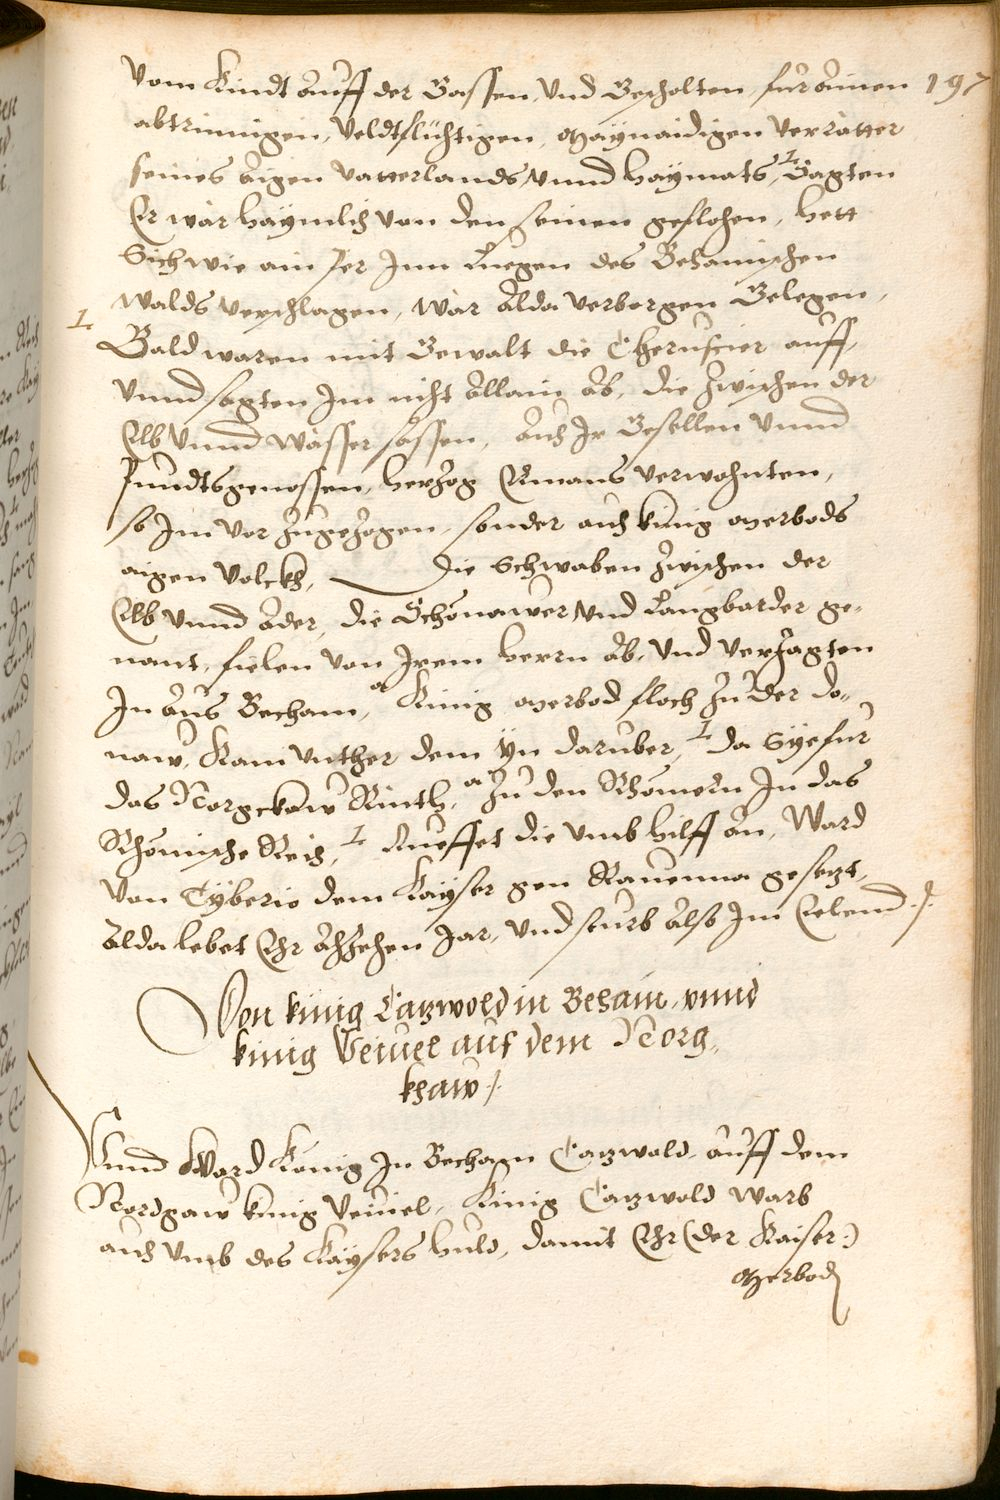 197
Vom Kindt auff der Gassen, Und Gescholten, fur ainen
abtrinnigen, Veldtflüchtigen, Maynaidigen Verrätter
seines aigen Vatterlands, Unnd haymats, Sagten
Er wär haymlich Von den seinen geflohen, hett
Sich wie ain Jer Inn Luegen des Behamischen
Walds Verschlagen, wär Alda Verborgen Gelegen,
Bald waren mit Gewalt die Cheruscier auff,
Unnd sagten Im nicht Allain Ab, die Zwischen der
Elb Unnd Wasser sassen, Auch Ir Gesellen Unnd
Pundtsgenossen, herzog Ermans Verwohnten,
so Im Vor Zugezogen, sonder auch künig Merbods
aigen Volckh, Die Schwaben Zwischen der
Elb Unnd Ader, die Schönawer Und Langbarder ge-
nant, fielen Von Irem herrn Ab, Und Verjagten
In Aus Becham, Künig Merbod floch Zu der Do-
naw, Kam Unther dem Yn daruber, da Sye fur
das Norgckaw Rinth, Zu den Rhömern In das
Rhömische Reich, Rueffet die Umb hilff An, Ward
Von Tyberio dem Kayser gen Rauenna gesetzt,
Alda lebet Ehr Achzehen Jar, Und sturb Also Im Ellend.
Von künig Catzwold in Behaim, vnnd
künig Veiuel auf dem Norg-
khaw
Unnd Ward König In Becham Catzwald, Auff dem
Nordgaw künig Veiuel, Künig Catzwold Warb
auch Umb des Kaysers huld, damit Ehr (der Kaiser:)
Merbod